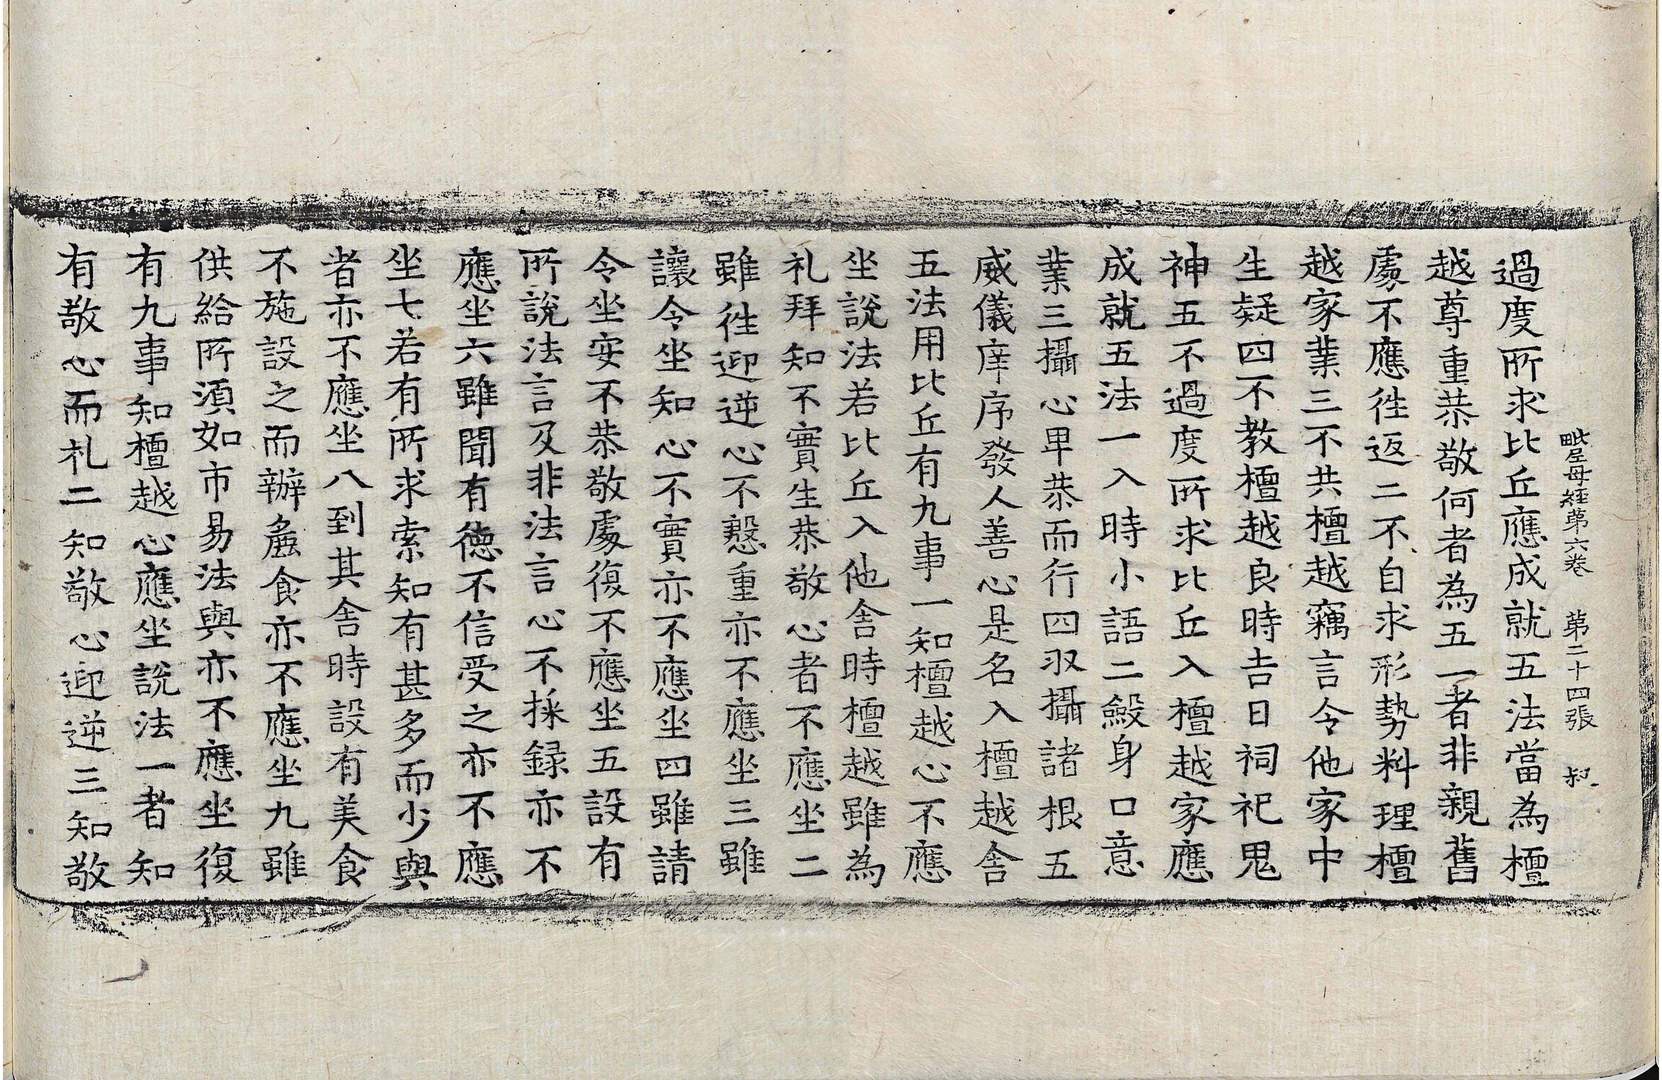 毗尼母經第六卷　第二十四張　叔
過度所求比丘應成就五法當為檀
越尊重恭敬何者為五一者非親舊
處不應往返二不自求形勢料理檀
越家業三不共檀越竊言令他家中
生疑四不教檀越良時吉日祠祀鬼
神五不過度所求比丘入檀越家應
成就五法一入時小語二殿身口意
業三攝心卑恭而行四収攝諸根五
威儀庠序發人善心是名入檀越舍
五法用比丘有九事一知檀越心不應
坐說法若比丘入他舍時檀越雖為
礼拜知不實生恭敬心者不應坐二
雖往迎逆心不慇重亦不應坐三雖
讓令坐知心不實亦不應坐四雖請
令坐安不恭敬處復不應坐五設有
所說法言及非法言心不採録亦不
應坐六雖聞有徳不信受之亦不應
坐七若有所求索知有甚多而少與
者亦不應坐八到其舍時設有美食
不施設之而辦麁食亦不應坐九雖
供給所須如市易法與亦不應坐復
有九事知檀越心應坐說法一者知
有敬心而礼二知敬心迎逆三知敬